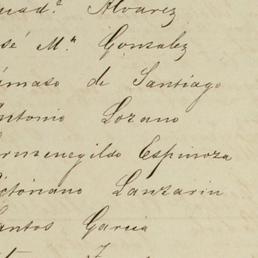 Guad.ᵉ Alvarez
José M.ᵃ Gonzalez
Dámaso de Santiago
Antonio Lozano
Hermenegildo Espinoza
Victoriano Lanzarin
Santos Garcia